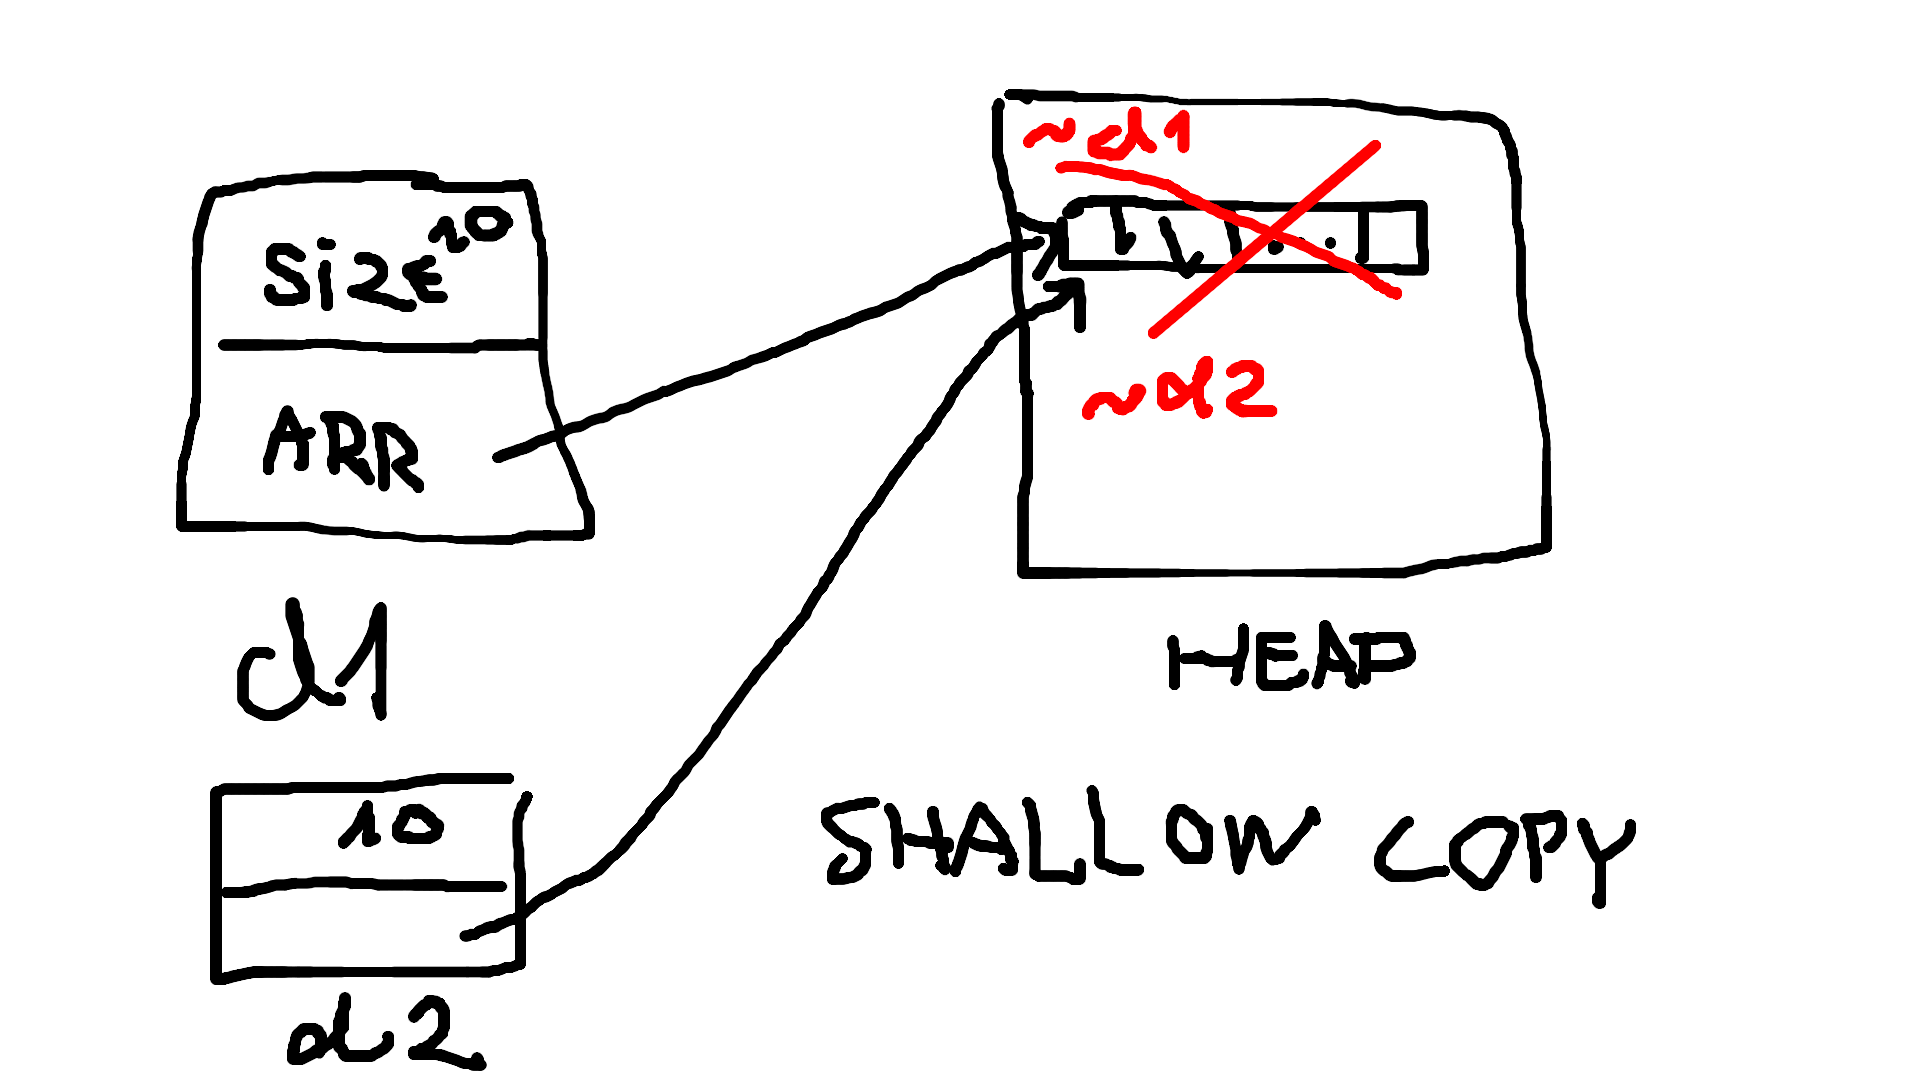 Size 10
ARR
d1
10
d2
~d1
~d2
HEAP
SHALLOW COPY